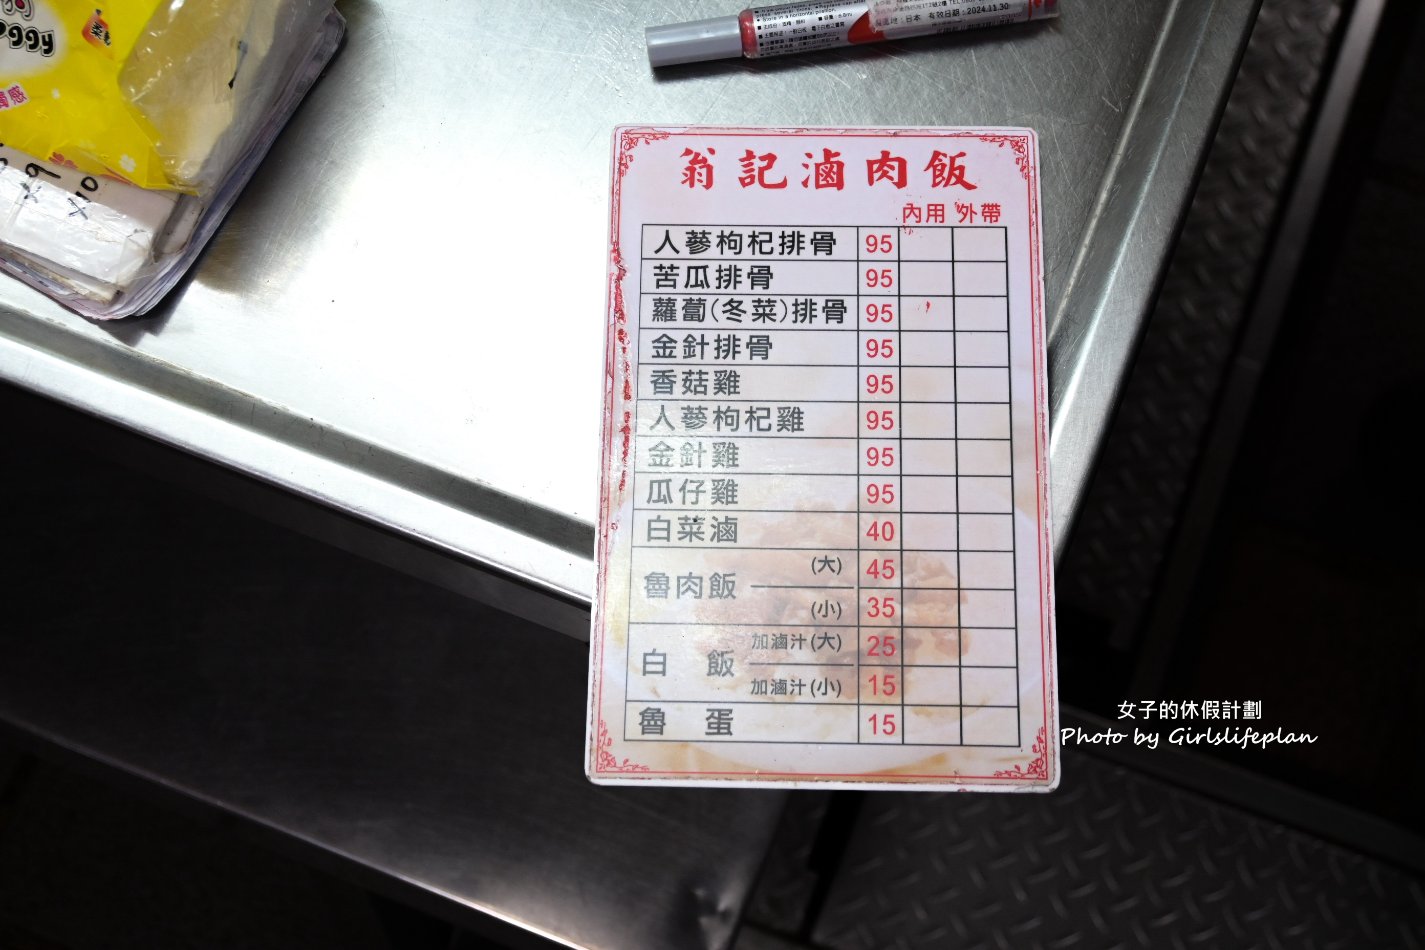 Store in a horizontal position.
產地：日本 有效日期：2024.11.30
x9
x10
翁記滷肉飯
內用 外帶
人蔘枸杞排骨 95
苦瓜排骨 95
蘿蔔(冬菜)排骨 95
金針排骨 95
香菇雞 95
人蔘枸杞雞 95
金針雞 95
瓜仔雞 95
白菜滷 40
魯肉飯 (大) 45
(小) 35
白飯 加滷汁(大) 25
加滷汁(小) 15
魯蛋 15
女子的休假計劃
Photo by Girlslifeplan